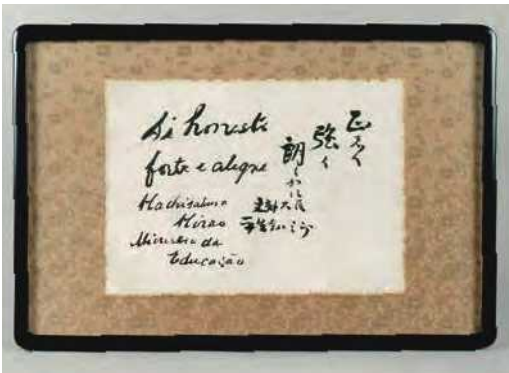 Si honesto
forte e alegre
Hachisaburo
Hirao
Ministro da
Educação
正しく
強く
朗らかに
文部大臣
平生釟三郎